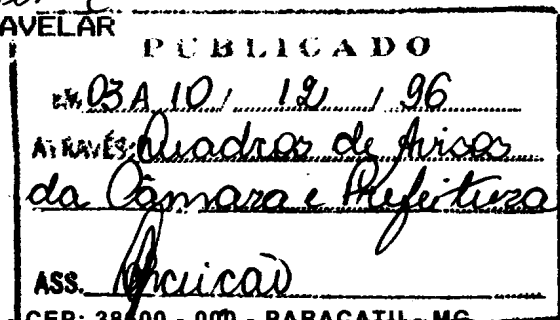 AVELAR
PUBLICADO
EM 03 A 10 / 12 / 96
ATRAVÉS: Quadros de Avisos
da Câmara e Prefeitura
ASS.
CEP: 38600 - 000 - PARACATU - MG